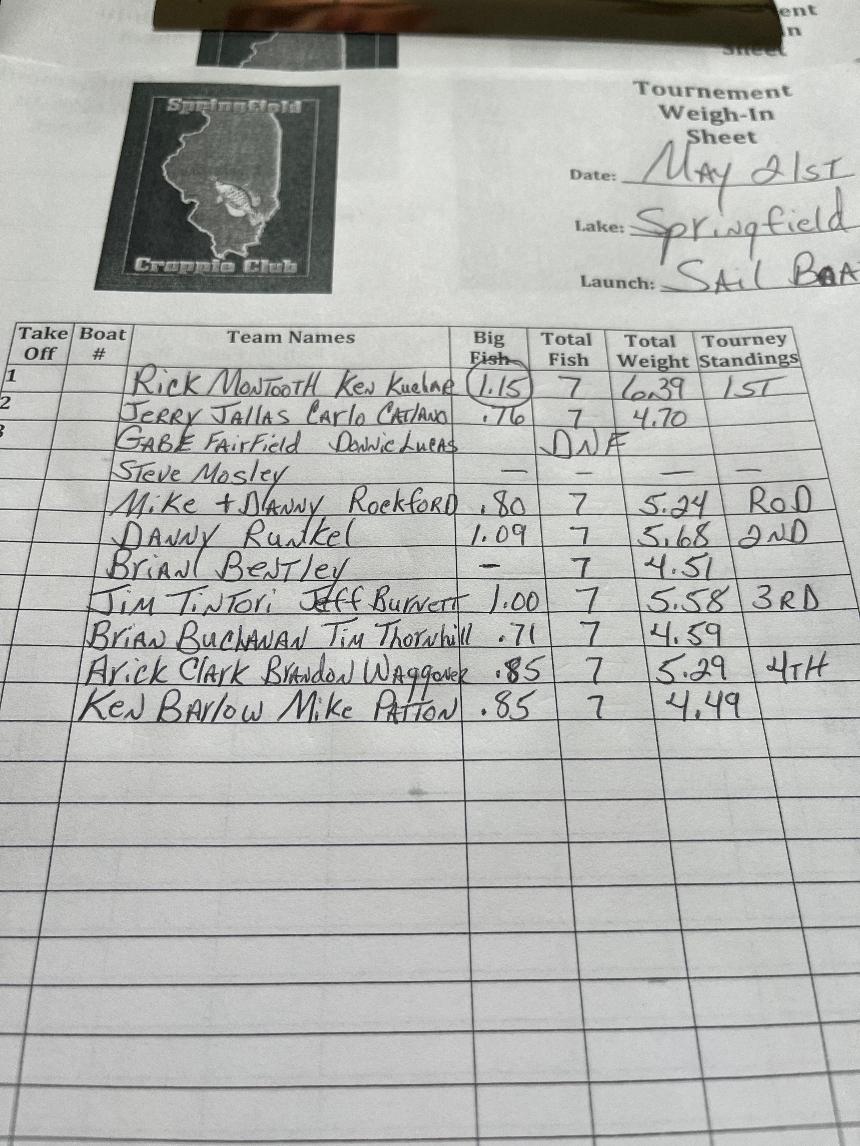 ent
in
Sheet
Springfield
Crappie Club
Tournement
Weigh-In
Sheet
Date: May 21ST
Lake: Springfield
Launch: SAil BOA
Take Off Boat # Team Names Big Fish Total Fish Total Weight Tourney Standings
1 Rick Montooth Ken Kuelne 1.15 7 6.39 1ST
2 Jerry Jallas Carlo Catlano .76 7 4.70
3 Gabe Fairfield Donnie Lucas DNF
Steve Mosley — — — —
Mike + Danny Rockford .80 7 5.24 ROD
Danny Runkel 1.09 7 5.68 2ND
Brian Bentley — 7 4.51
Jim Tintori Jeff Burnett 1.00 7 5.58 3RD
Brian Buchanan Tim Thornhill .71 7 4.59
Arick Clark Brandon Waggoner .85 7 5.29 4TH
Ken Barlow Mike Patton .85 7 4.49